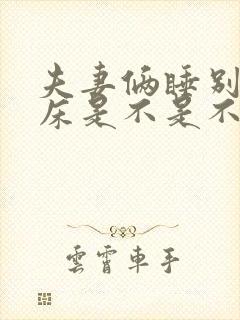 夫妻俩睡别
床是不是不
雲霄車手